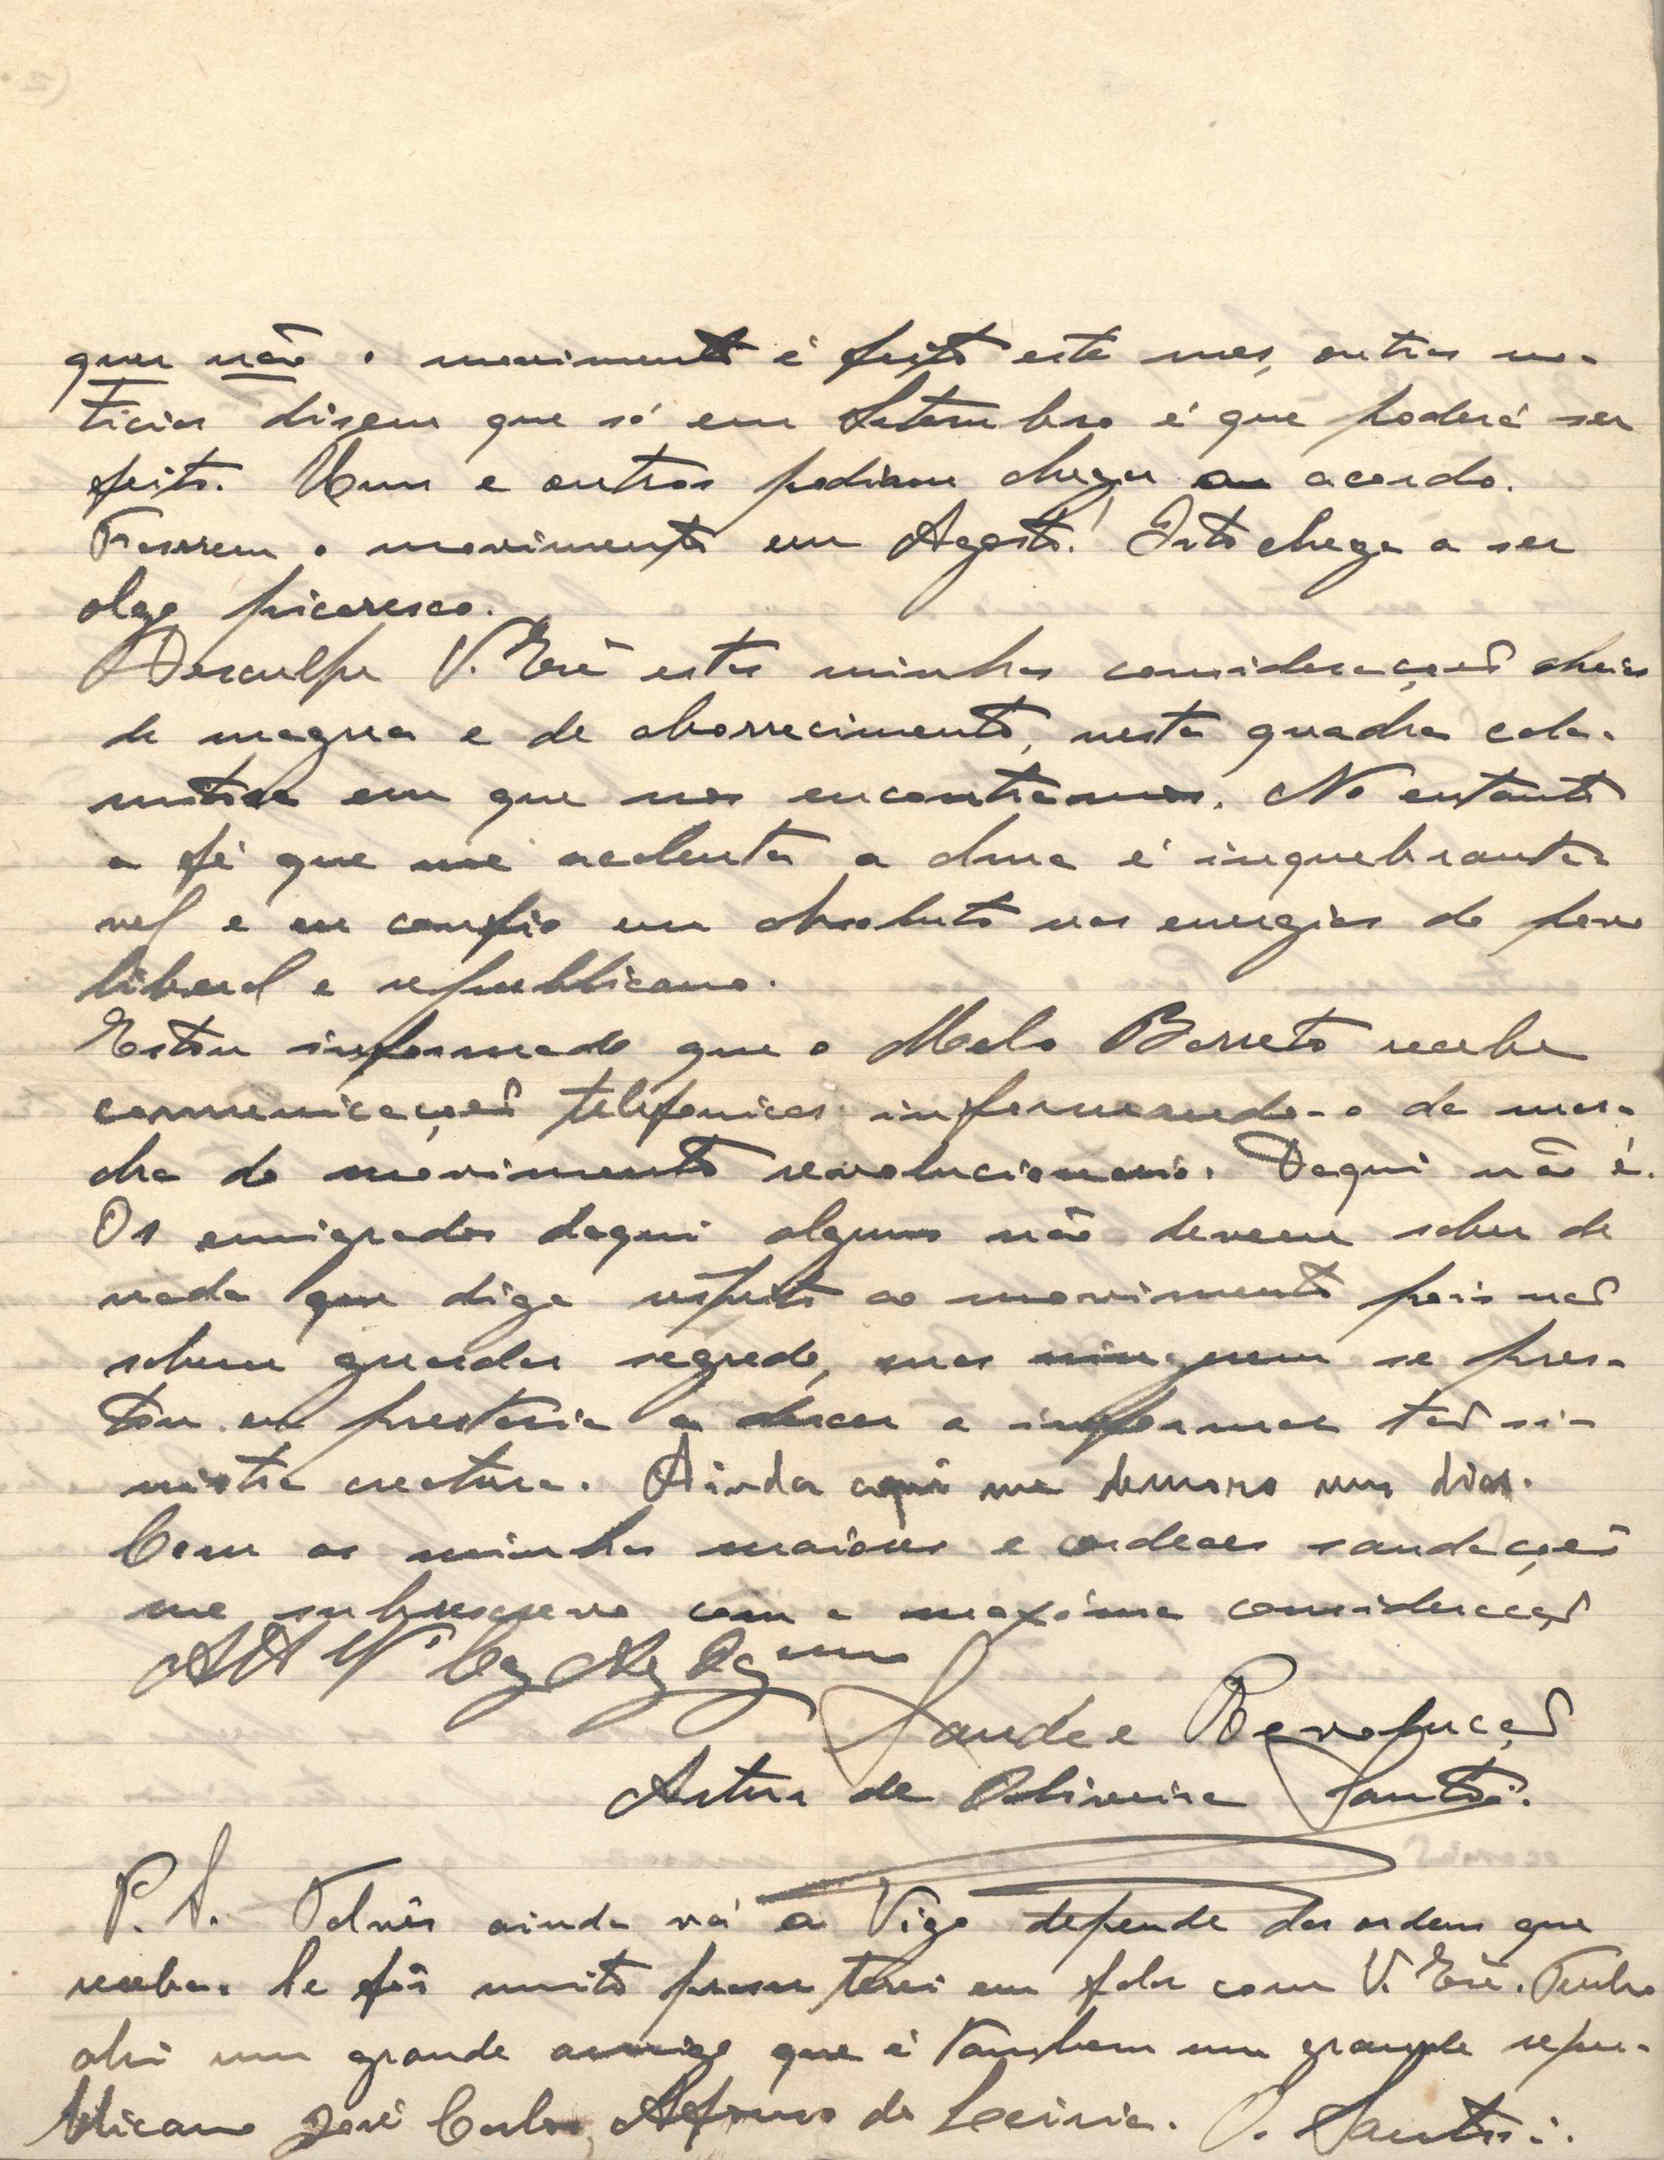 quer não o movimento é feito este mes, outras no-
ticias disem que só em Setembro é que poderá ser
feito. Uns e outros podiam chegar a acordo.
Faserem o movimento em Agosto! Isto chega a ser
algo picaresco.
Desculpe V. Exª estas minhas considerações cheias
de magua e de aborrecimento, nesta quadra cala-
mitosa em que nos encontramos. No entanto
a fé que me acalenta a alma é inquebranta-
vel e eu confio em absoluto nas energias do povo
liberal e republicano.
Estou informado que o Melo Barreto recebe
comunicações telefonicas informando-o da mar-
cha do movimento revolucionario. Daqui não é.
Os emigrados daqui alguns não devem saber de
nada que diga respeito ao movimento pois não
sabem guardar segredo, mas ninguem se pres-
tou ou prestaria a descer a informar tão si-
nistra creatura. Ainda aqui me demoro uns dias.
Com as minhas maiores e cordeaes saudações
me subrescrevo com a maxima consideração
Saude e Revolução
Artur de Oliveira Santos.
P. S. Talvês ainda vá a Vigo depende das ordens que
receba. Se fôr muito praser terei em falar com V. Exª. Tenho
ahi um grande amigo que é tambem um grande repu-
blicano José Carlos Afonso de Leiria. O. Santos.